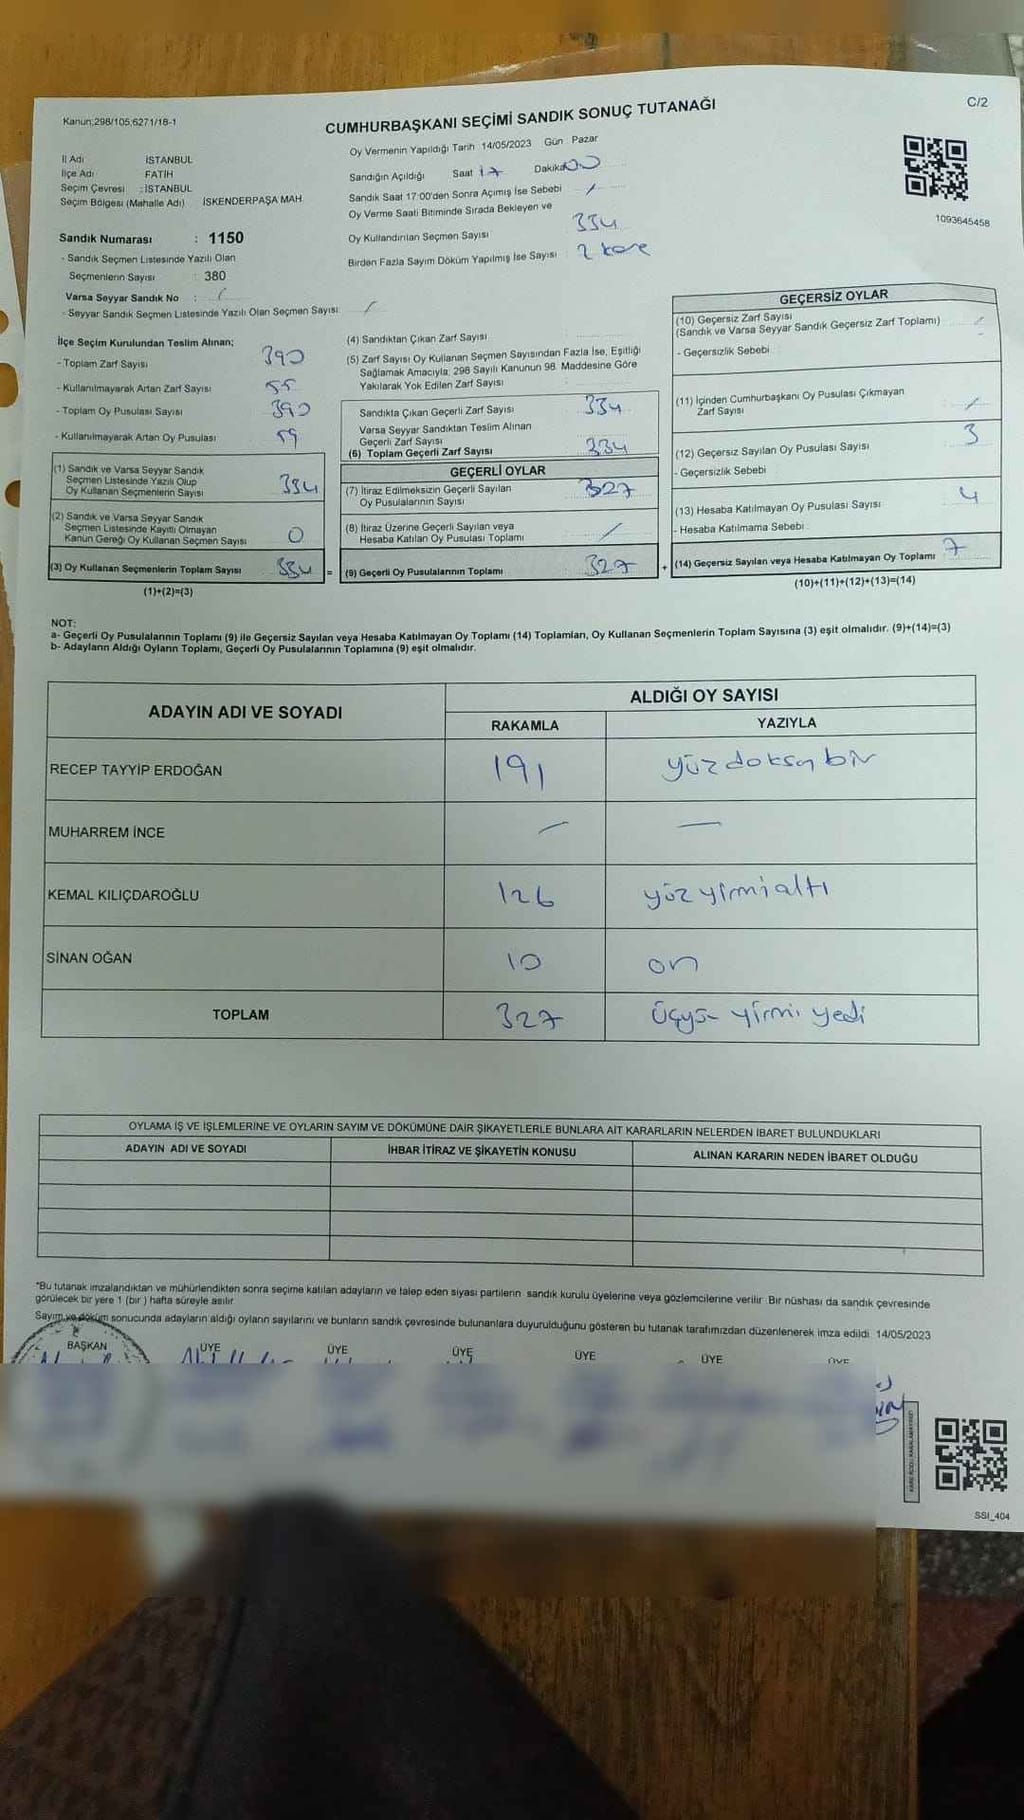 Kanun;298/105,6271/18-1
CUMHURBAŞKANI SEÇİMİ SANDIK SONUÇ TUTANAĞI
C/2
İl Adı İSTANBUL
İlçe Adı FATİH
Seçim Çevresi :İSTANBUL
Seçim Bölgesi (Mahalle Adı) İSKENDERPAŞA MAH.
Sandık Numarası : 1150
- Sandık Seçmen Listesinde Yazılı Olan
Seçmenlerin Sayısı : 380
Varsa Seyyar Sandık No : /
- Seyyar Sandık Seçmen Listesinde Yazılı Olan Seçmen Sayısı: /
Oy Vermenin Yapıldığı Tarih 14/05/2023 Gün Pazar
Sandığın Açıldığı Saat 17 Dakika 00
Sandık Saat 17:00'den Sonra Açımış İse Sebebi /
Oy Verme Saati Bitiminde Sırada Bekleyen ve
Oy Kullandırılan Seçmen Sayısı 334
Birden Fazla Sayım Döküm Yapılmış İse Sayısı : 2 kere
1093645458
İlçe Seçim Kurulundan Teslim Alınan;
- Toplam Zarf Sayısı 390
- Kullanılmayarak Artan Zarf Sayısı 55
- Toplam Oy Pusulası Sayısı 390
- Kullanılmayarak Artan Oy Pusulası 59
(1) Sandık ve Varsa Seyyar Sandık
Seçmen Listesinde Yazılı Olup
Oy Kullanan Seçmenlerin Sayısı 334
(2) Sandık ve Varsa Seyyar Sandık
Seçmen Listesinde Kayıtlı Olmayan
Kanun Gereği Oy Kullanan Seçmen Sayısı 0
(3) Oy Kullanan Seçmenlerin Toplam Sayısı 334 =
(1)+(2)=(3)
(4) Sandıktan Çıkan Zarf Sayısı
(5) Zarf Sayısı Oy Kullanan Seçmen Sayısından Fazla İse, Eşitliği
Sağlamak Amacıyla, 298 Sayılı Kanunun 98. Maddesine Göre
Yakılarak Yok Edilen Zarf Sayısı
Sandıkta Çıkan Geçerli Zarf Sayısı 334
Varsa Seyyar Sandıktan Teslim Alınan
Geçerli Zarf Sayısı
(6) Toplam Geçerli Zarf Sayısı 334
GEÇERLİ OYLAR
(7) İtiraz Edilmeksizin Geçerli Sayılan
Oy Pusulalarının Sayısı 327
(8) İtiraz Üzerine Geçerli Sayılan veya
Hesaba Katılan Oy Pusulası Toplamı /
(9) Geçerli Oy Pusulalarının Toplamı 327 +
GEÇERSİZ OYLAR
(10) Geçersiz Zarf Sayısı
(Sandık ve Varsa Seyyar Sandık Geçersiz Zarf Toplamı) /
- Geçersizlik Sebebi
(11) İçinden Cumhurbaşkanı Oy Pusulası Çıkmayan
Zarf Sayısı /
(12) Geçersiz Sayılan Oy Pusulası Sayısı 3
- Geçersizlik Sebebi
(13) Hesaba Katılmayan Oy Pusulası Sayısı 4
- Hesaba Katılmama Sebebi
(14) Geçersiz Sayılan veya Hesaba Katılmayan Oy Toplamı 7
(10)+(11)+(12)+(13)=(14)
NOT:
a- Geçerli Oy Pusulalarının Toplamı (9) ile Geçersiz Sayılan veya Hesaba Katılmayan Oy Toplamı (14) Toplamları, Oy Kullanan Seçmenlerin Toplam Sayısına (3) eşit olmalıdır. (9)+(14)=(3)
b- Adayların Aldığı Oyların Toplamı, Geçerli Oy Pusulalarının Toplamına (9) eşit olmalıdır.
ADAYIN ADI VE SOYADI ALDIĞI OY SAYISI
RAKAMLA YAZIYLA
RECEP TAYYİP ERDOĞAN 191 yüzdoksanbir
MUHARREM İNCE - -
KEMAL KILIÇDAROĞLU 126 yüzyirmialtı
SİNAN OĞAN 10 on
TOPLAM 327 üçyüz yirmi yedi
OYLAMA İŞ VE İŞLEMLERİNE VE OYLARIN SAYIM VE DÖKÜMÜNE DAİR ŞİKAYETLERLE BUNLARA AİT KARARLARIN NELERDEN İBARET BULUNDUKLARI
ADAYIN ADI VE SOYADI İHBAR İTİRAZ VE ŞİKAYETİN KONUSU ALINAN KARARIN NEDEN İBARET OLDUĞU
*Bu tutanak imzalandıktan ve mühürlendikten sonra seçime katılan adayların ve talep eden siyasi partilerin sandık kurulu üyelerine veya gözlemcilerine verilir. Bir nüshası da sandık çevresinde
görülecek bir yere 1 (bir ) hafta süreyle asılır.
Sayım ve döküm sonucunda adayların aldığı oyların sayılarını ve bunların sandık çevresinde bulunanlara duyurulduğunu gösteren bu tutanak tarafımızdan düzenlenerek imza edildi. 14/05/2023
BAŞKAN ÜYE ÜYE ÜYE ÜYE ÜYE ÜYE
SSI_404